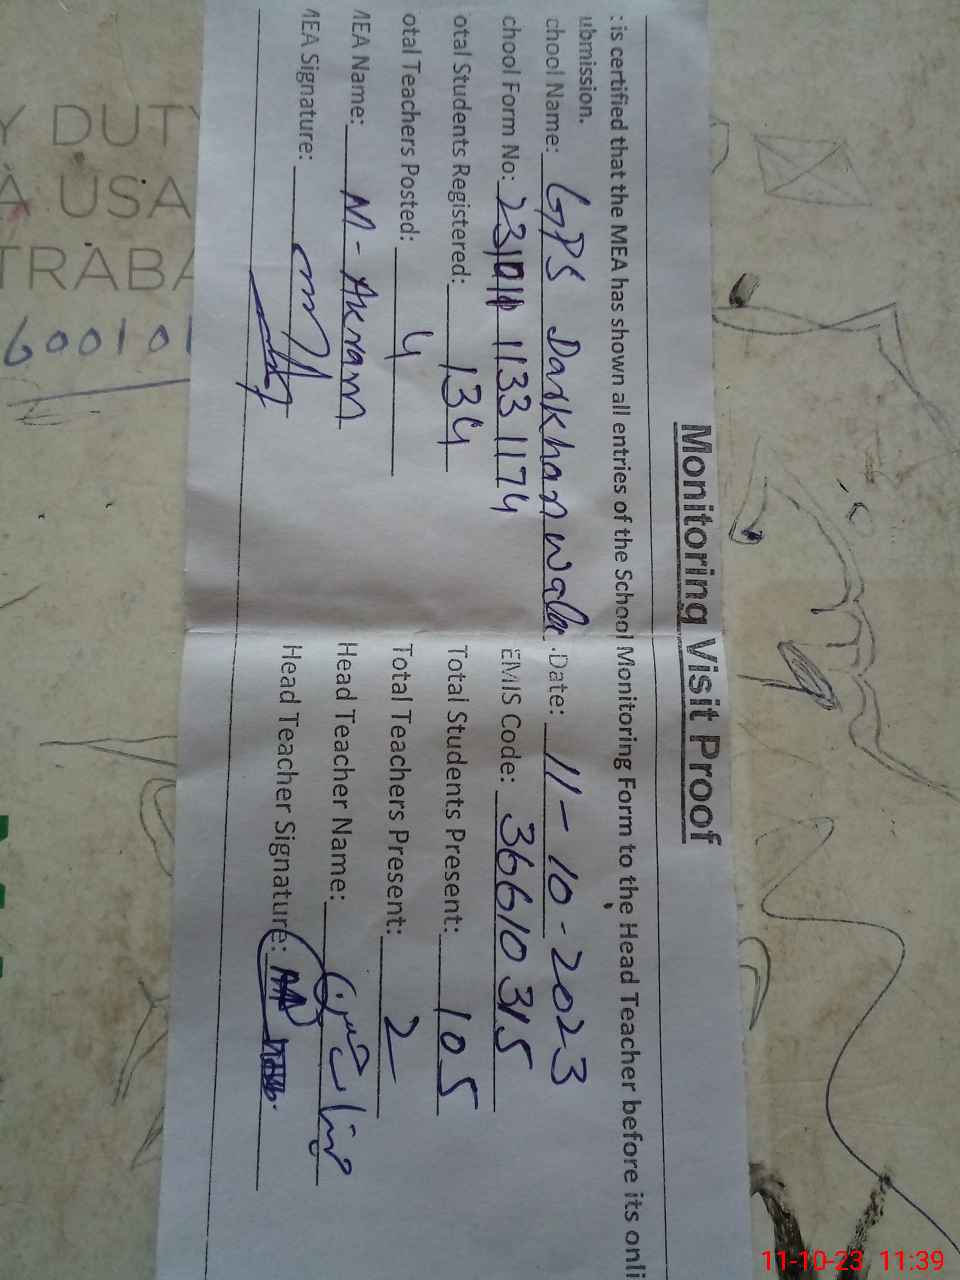 Monitoring Visit Proof
t is certified that the MEA has shown all entries of the School Monitoring Form to the Head Teacher before its onli
ubmission.
chool Name: GPS Darkhan wala .Date: 11-10-2023
chool Form No: EMIS Code: 36610315
otal Students Registered: 134 Total Students Present: 105
otal Teachers Posted: 4 Total Teachers Present: 2
MEA Name: M-Akram Head Teacher Name:
MEA Signature: Head Teacher Signature:
Y DUTY
A USA
TRABA
600101
11-10-23 11:39